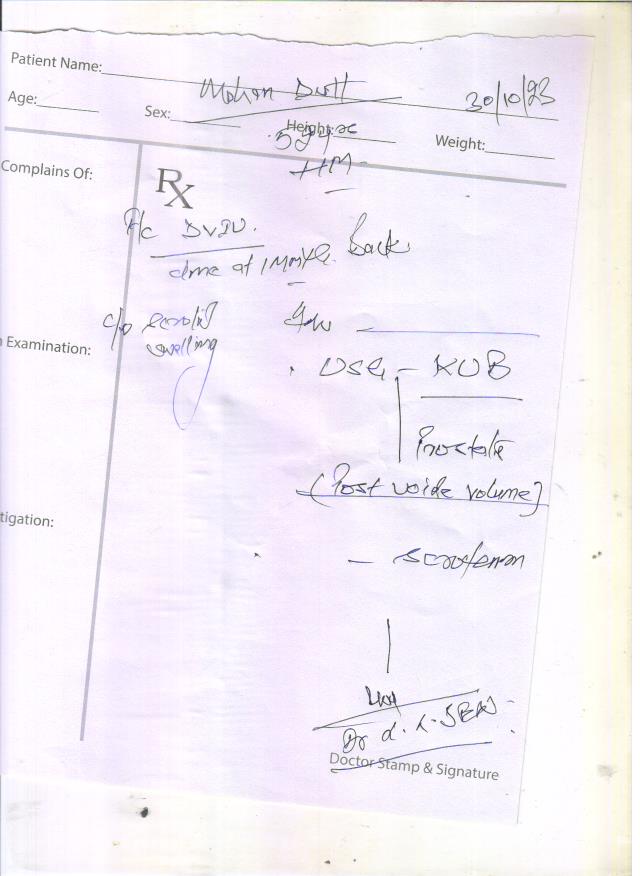 Patient Name: Mohan Dutt 30/10/23
Age: Sex: Height: Weight:
59 yrs
HM
Complains Of:
Rx
F/c DVIU.
done at 1 Month Back
c/o scrotal
swelling
Adv
Examination:
USG - KUB
Prostate
(Post voide volume)
tigation:
- scrotum
Dr d. K. SEN
Doctor Stamp & Signature